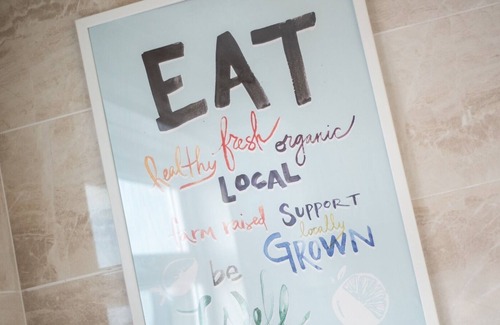 EAT
healthy fresh organic
LOCAL
farm raised SUPPORT
locally
GROWN
be
Well